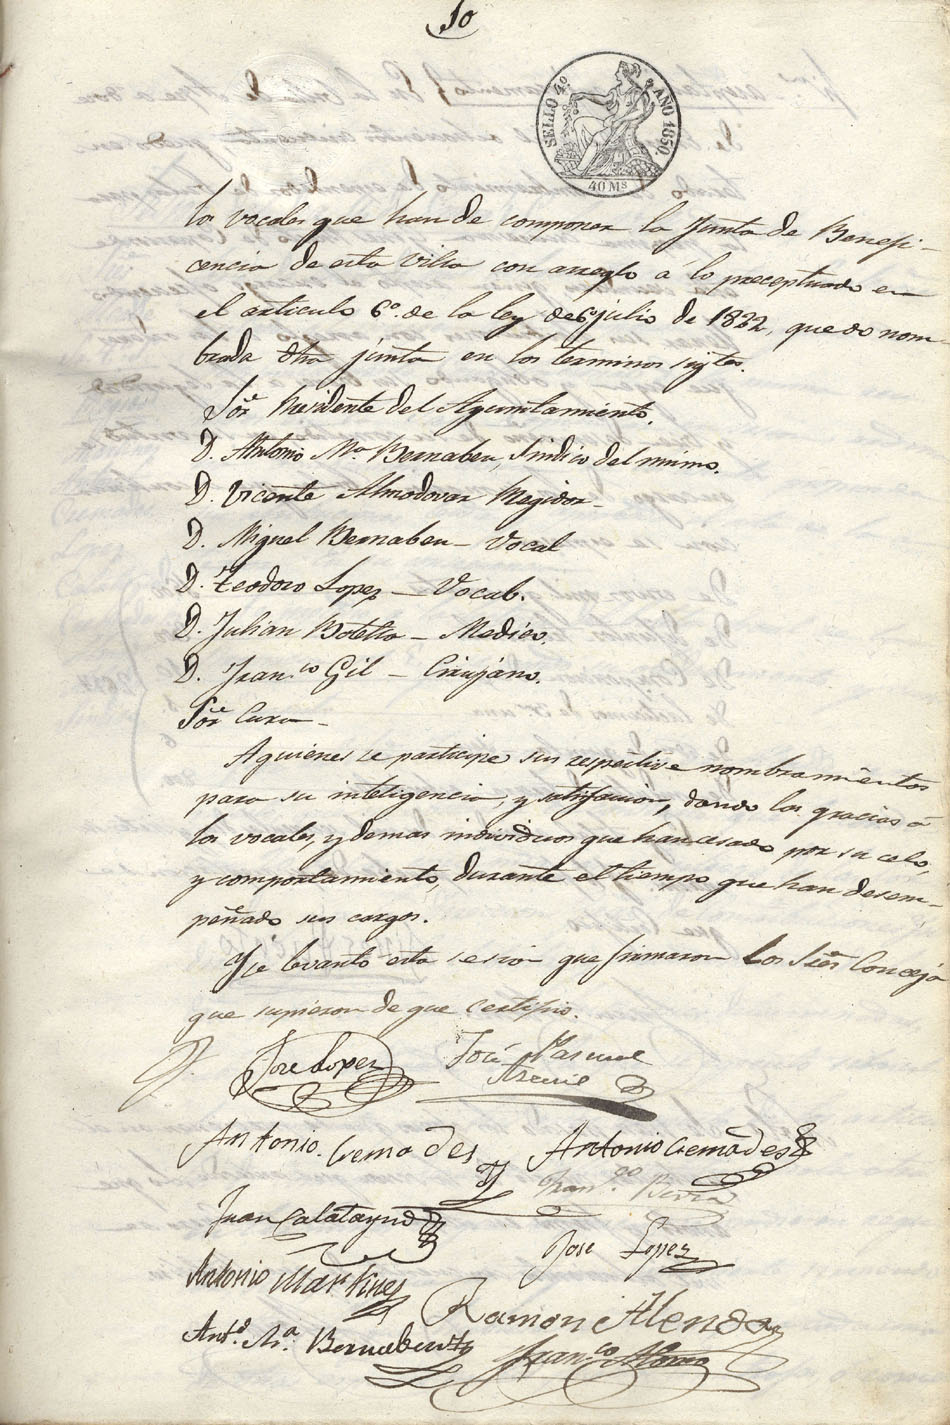 10
SELLO 4º AÑO 1850.
40 Ms
los vocales que han de componer la Junta de Benefi-
cencia de esta Villa con arreglo á lo preceptuado en
el articulo 6º. de la ley de 6 julio de 1822, quedo nom-
brada dha junta en los terminos sigtes.
Sor. Presidente del Ayuntamiento.
D. Antonio Mª Bernabeu, Sindico del mismo.
D. Vicente Almodovar Regidor-
D. Miguel Bernabeu - Vocal
D. Teodoro Lopez - Vocal.
D. Julian Botella - Medico.
D. Franco. Gil - Cirujano.
Sor. Cura -
A quienes se participe sus respective nombramientos
para su inteligencia, y satisfacion, dando las gracias á
los vocales, y demas individuos que han cesado por su celo,
y comportamiento, durante el tiempo que han desem-
peñado sus cargos.
Y se levanto esta sesion que firmaron los Sres. Conceja
que supieron de que certifico.
Jose Lopez José Pascual
Antonio Cremades Antonio Cremades
Juan Calatayud
Jose Lopez
Antonio Martines
Ramon
Anto. Mª. Bernabeu
Franco